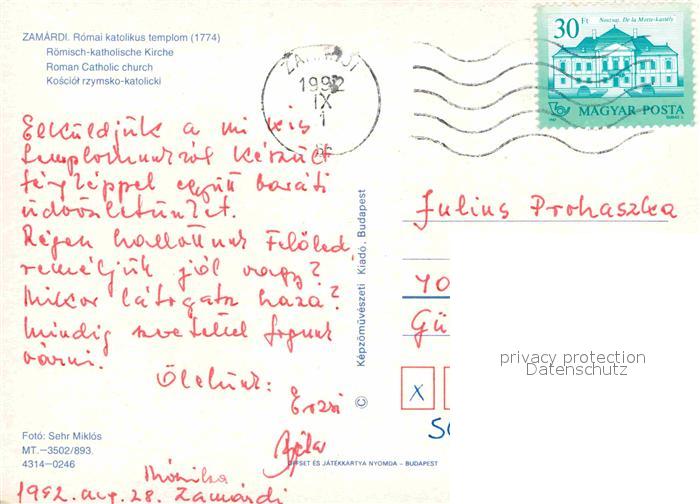 ZAMÁRDI. Római katolikus templom (1774)
Römisch-katholische Kirche
Roman Catholic church
Kościół rzymsko-katolicki
ZAMÁRDI
1992
IX
1
30 Ft
Nosztop, De la Motte-kastély
MAGYAR POSTA
Elküldjük a mi kis
templomunkról készült
fényképpel együtt baráti
üdvözletünket.
Régen hallottunk Felőled,
reméljük jól vagy?
Mikor látogatsz haza?
Mindig szeretettel fogunk
várni.
Ölelünk:
Erzsi
Béla
Mónika
1992. aug. 28. Zamárdi
Julius Prohaszka
40
Gü
X
Képzőművészeti Kiadó, Budapest
©
privacy protection
Datenschutz
Fotó: Sehr Miklós
MT.—3502/893.
4314—0246
OFFSET ÉS JÁTÉKKÁRTYA NYOMDA – BUDAPEST